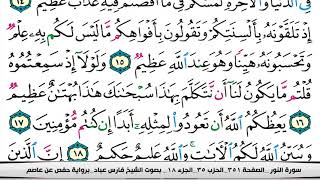 فِى ٱلدُّنْيَا وَٱلْءَاخِرَةِ لَمَسَّكُمْ فِى مَآ أَفَضْتُمْ فِيهِ عَذَابٌ عَظِيمٌ ١٤
إِذْ تَلَقَّوْنَهُۥ بِأَلْسِنَتِكُمْ وَتَقُولُونَ بِأَفْوَاهِكُم مَّا لَيْسَ لَكُم بِهِۦ عِلْمٌ
وَتَحْسَبُونَهُۥ هَيِّنًا وَهُوَ عِندَ ٱللَّهِ عَظِيمٌ ١٥ وَلَوْلَآ إِذْ سَمِعْتُمُوهُ
قُلْتُم مَّا يَكُونُ لَنَآ أَن نَّتَكَلَّمَ بِهَٰذَا سُبْحَٰنَكَ هَٰذَا بُهْتَٰنٌ عَظِيمٌ
١٦ يَعِظُكُمُ ٱللَّهُ أَن تَعُودُوا۟ لِمِثْلِهِۦٓ أَبَدًا إِن كُنتُم مُّؤْمِنِينَ ١٧
وَيُبَيِّنُ ٱللَّهُ لَكُمُ ٱلْءَايَٰتِ وَٱللَّهُ عَلِيمٌ حَكِيمٌ ١٨ إِنَّ ٱلَّذِينَ
سورة النور _ الصفحة ٣٥١ _ الحزب ٣٥ _ الجزء ١٨ _ بصوت الشيخ فارس عباد _ برواية حفص عن عاصم